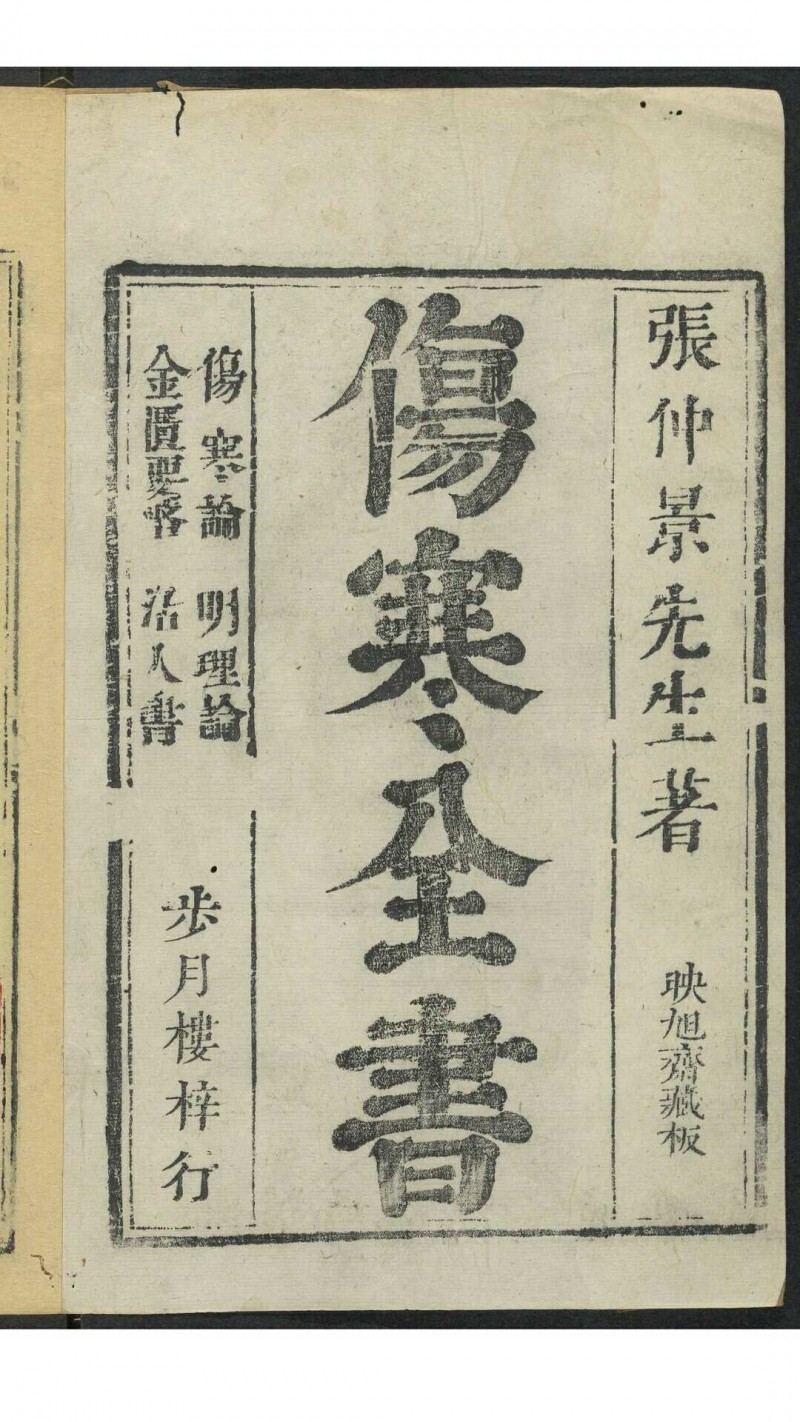 張仲景先生著
映旭齋藏板
傷寒全書
傷寒論 明理論
金匱要略 活人書
步月樓梓行